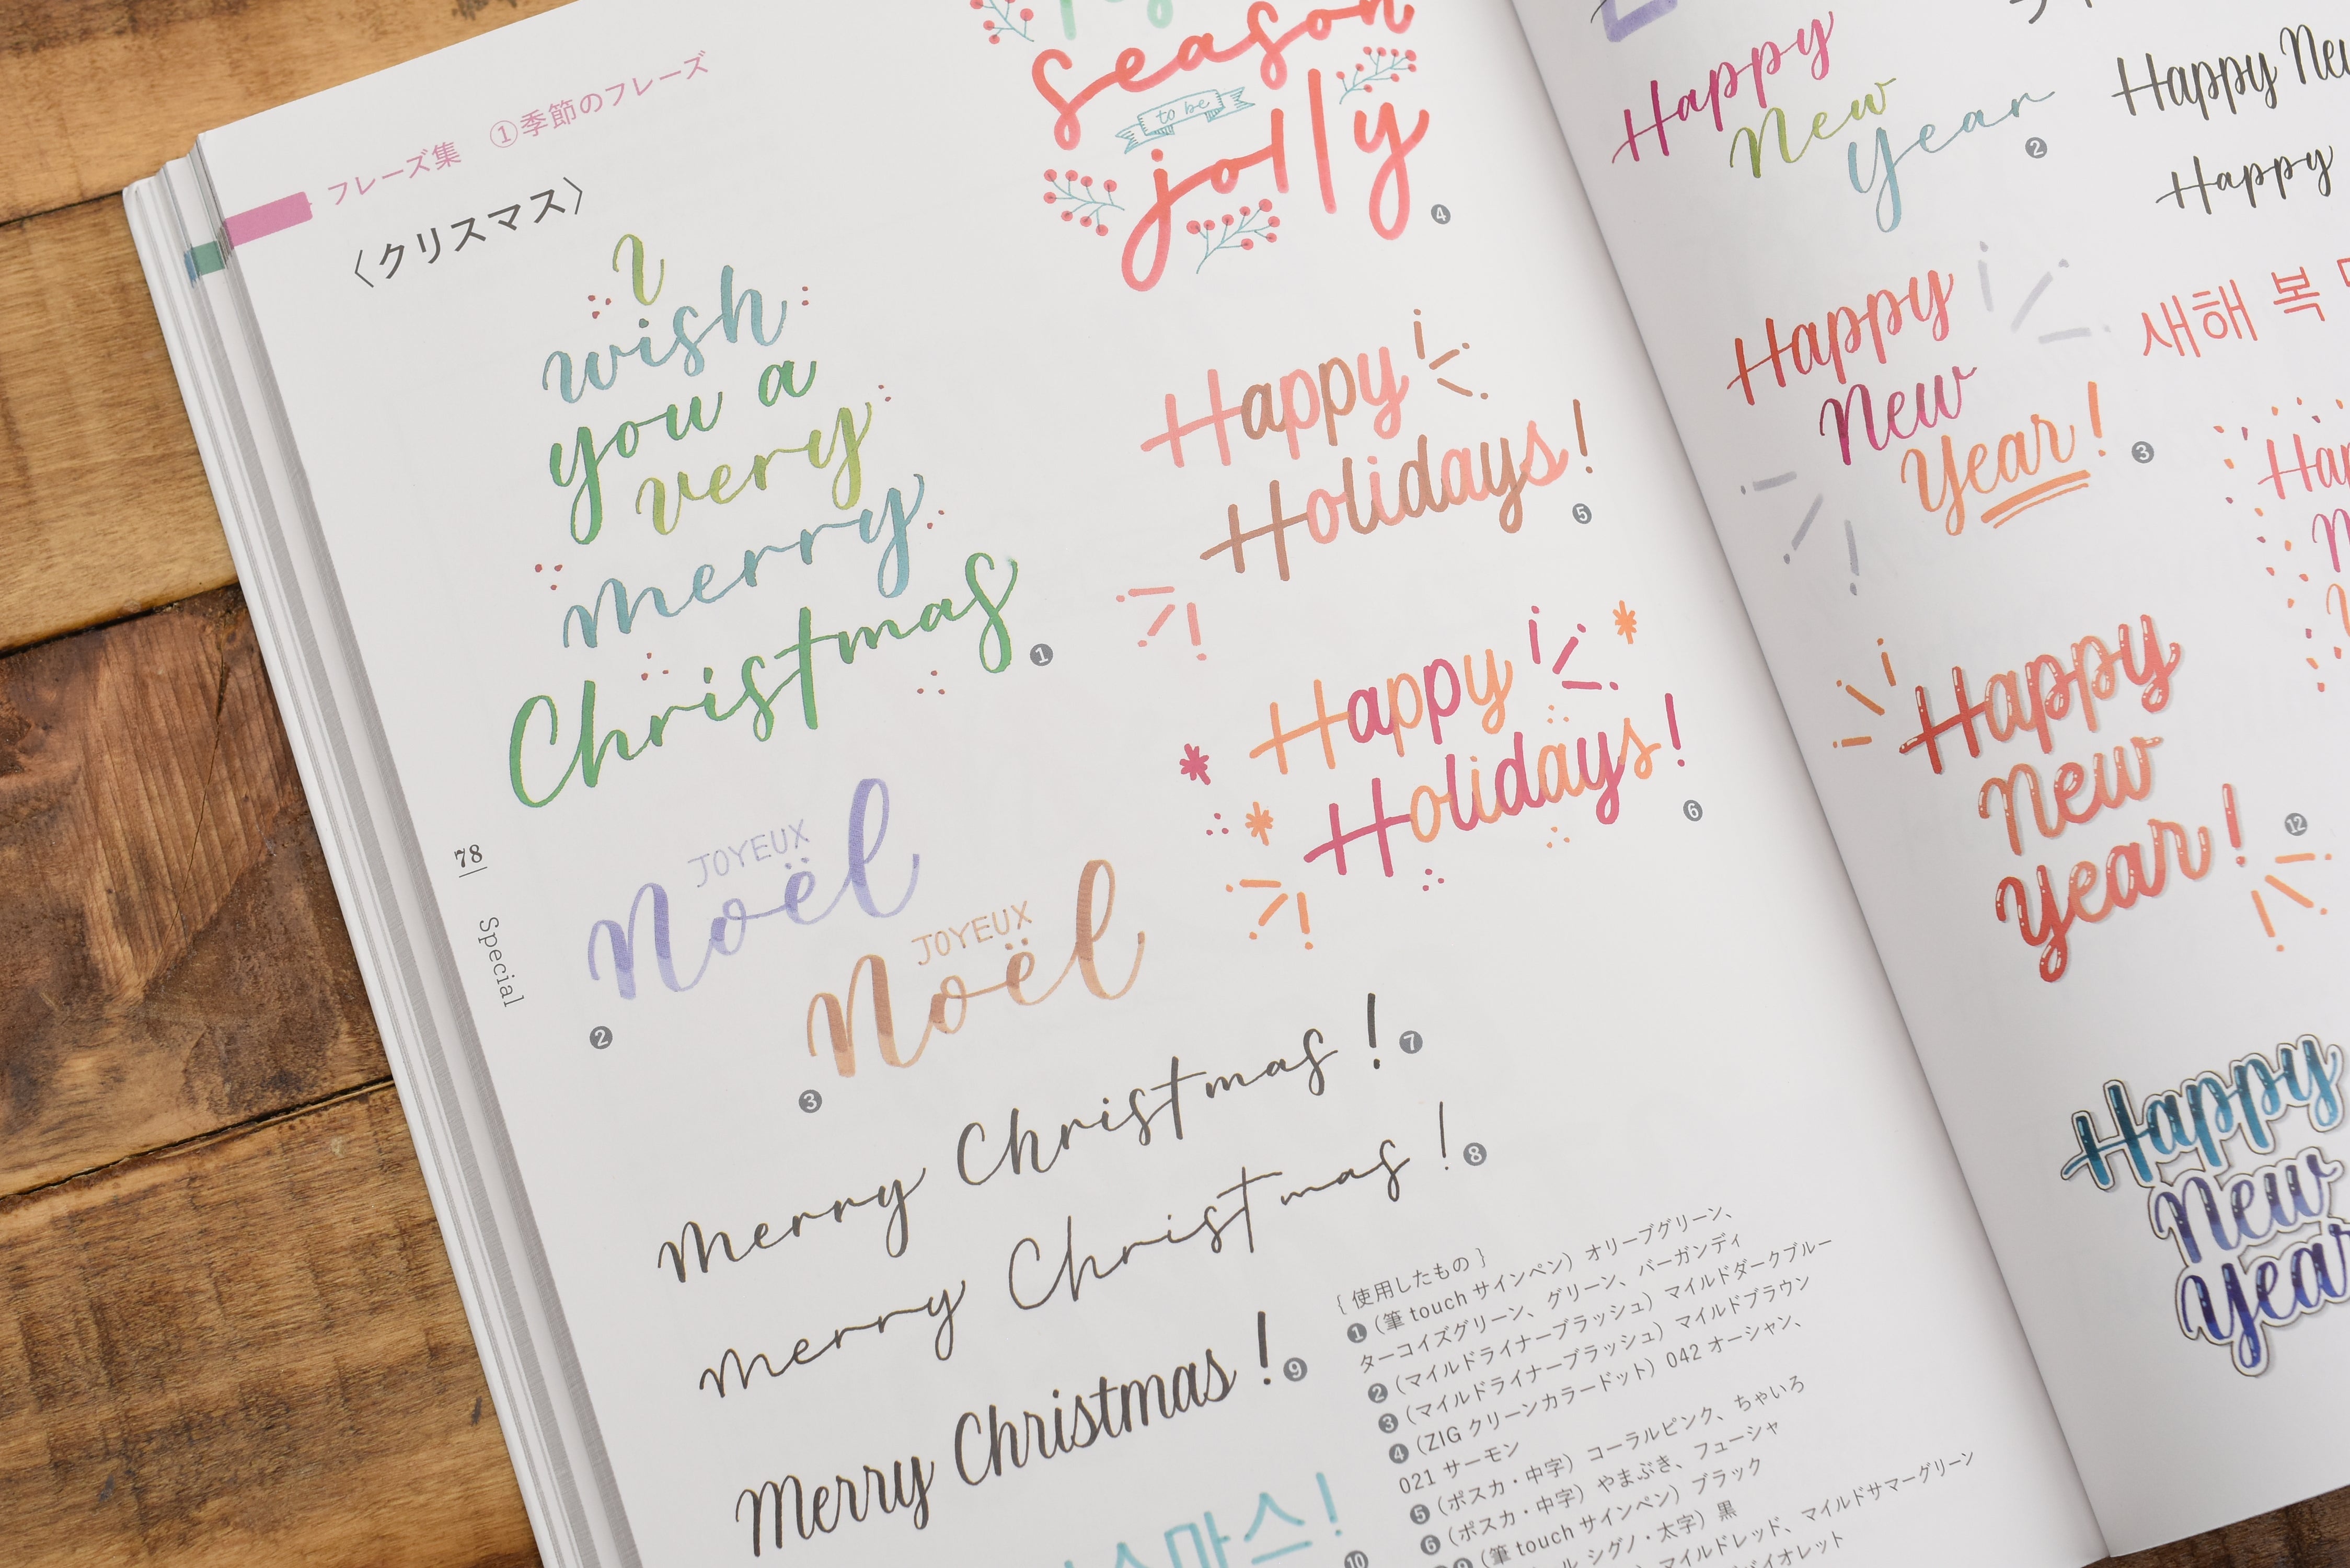 フレーズ集 ①季節のフレーズ
〈クリスマス〉
I
wish
you a
very
merry
Christmas
❶
season
to be
jolly
❹
Happy
Holidays!
❺
Happy
Holidays!
❻
JOYEUX
Noël
❷
JOYEUX
Noël
❸
Merry Christmas!
❼
Merry Christmas!
❽
Merry Christmas!
❾
마스!
❿
78
Special
{ 使用したもの }
❶（筆 touch サインペン）オリーブグリーン、
ターコイズグリーン、グリーン、バーガンディ
❷（マイルドライナーブラッシュ）マイルドダークブルー
❸（マイルドライナーブラッシュ）マイルドブラウン
❹（ZIG クリーンカラードット）042 オーシャン、
021 サーモン
❺（ポスカ・中字）コーラルピンク、ちゃいろ
❻（ポスカ・中字）やまぶき、フューシャ
（筆 touch サインペン）ブラック
シグノ・太字）黒
マイルドレッド、マイルドサマーグリーン
バイオレット
Happy
New
Year
❷
Happy
New
Year!
❸
Happy
New
Year!
⓬
Happy
New
Happy
새해 복
Happy
New
Year